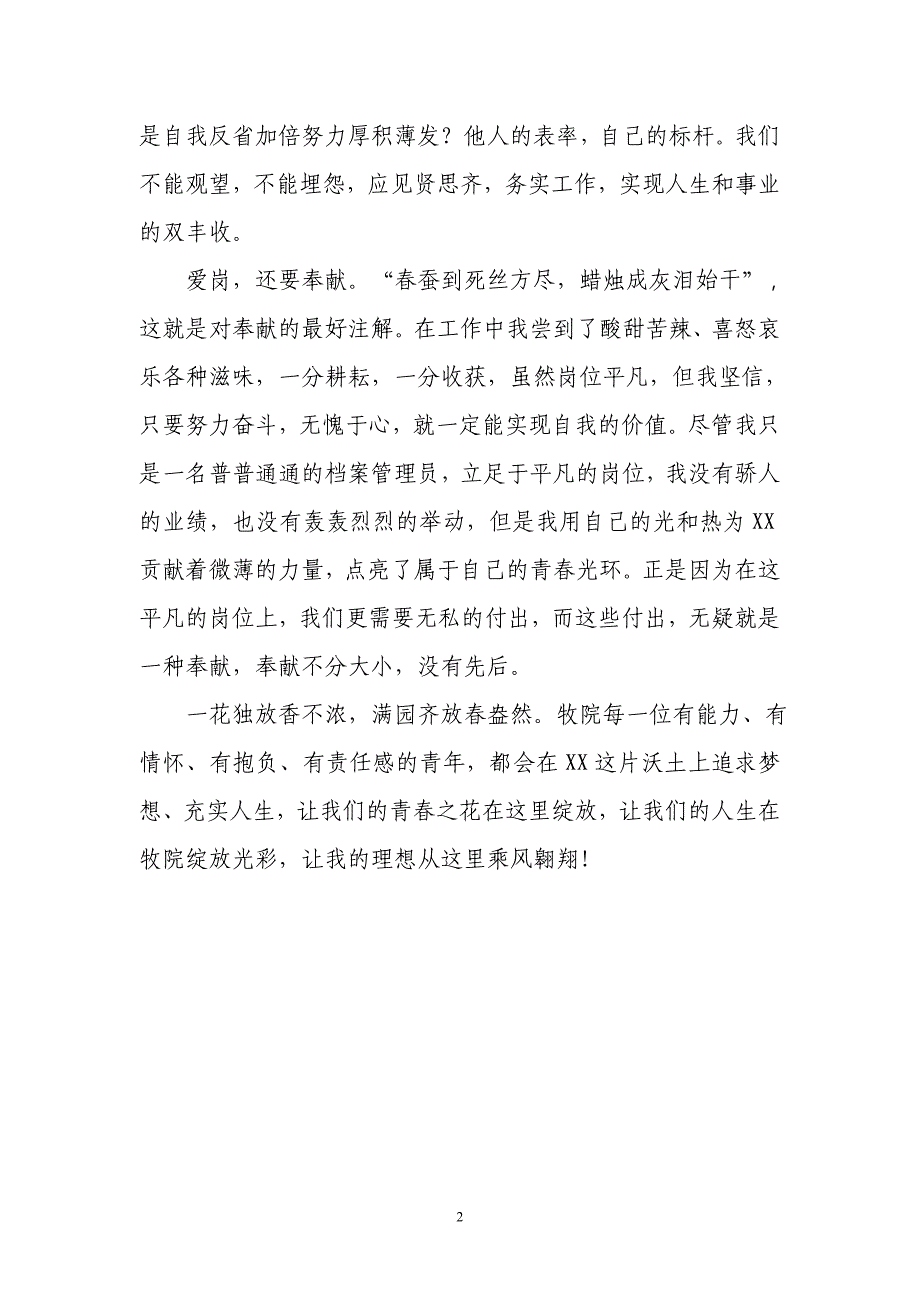 是自我反省加倍努力厚积薄发？他人的表率，自己的标杆。我们
不能观望，不能埋怨，应见贤思齐，务实工作，实现人生和事业
的双丰收。
爱岗，还要奉献。“春蚕到死丝方尽，蜡烛成灰泪始干”,
这就是对奉献的最好注解。在工作中我尝到了酸甜苦辣、喜怒哀
乐各种滋味，一分耕耘，一分收获，虽然岗位平凡，但我坚信，
只要努力奋斗，无愧于心，就一定能实现自我的价值。尽管我只
是一名普普通通的档案管理员，立足于平凡的岗位，我没有骄人
的业绩，也没有轰轰烈烈的举动，但是我用自己的光和热为 XX
贡献着微薄的力量，点亮了属于自己的青春光环。正是因为在这
平凡的岗位上，我们更需要无私的付出，而这些付出，无疑就是
一种奉献，奉献不分大小，没有先后。
一花独放香不浓，满园齐放春盎然。牧院每一位有能力、有
情怀、有抱负、有责任感的青年，都会在 XX 这片沃土上追求梦
想、充实人生，让我们的青春之花在这里绽放，让我们的人生在
牧院绽放光彩，让我的理想从这里乘风翱翔！
2